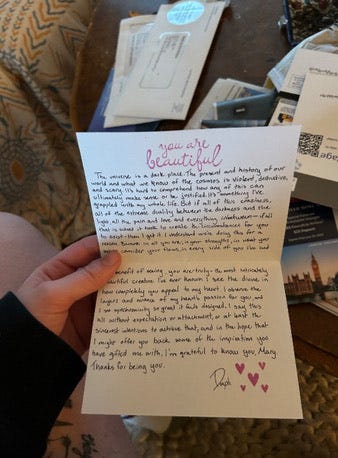 you are
beautiful
The universe is a dark place. The present and history of our
world and what we know of the cosmos is violent, destructive,
and scary. It's hard to comprehend how any of this can
ultimately make sense or be justified. It's something I've
grappled with my whole life. But if all of this craziness,
all of the extreme duality between the darkness and the
light, all the pain and love and everything inbetween - if all
that is what it took to create the circumstances for you
to exist - then I get it. I understand we're doing this for a
reason. Because in all you are, in your strengths, in what you
consider your flaws, in every side of you I've had
benefit of seeing, you are truly the most intricately
beautiful creature I've ever known. I see the divine in
how completely you appeal to my heart. I observe the
layers and nuance of my heart's passion for you, and
I see synchronicity so great it feels designed. I say this
all without expectation or attachment, or at least the
sincerest intentions to achieve that, and in the hope that
I might offer you back some of the inspiration you
have gifted me with. I'm grateful to know you, Mary.
Thanks for being you.
Daph